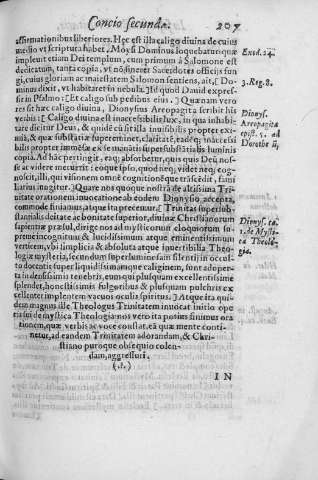 Concio secunda. 207
affirmationibus liberiores. Hęc est illa caligo diuina de cuius
medio vt scriptura habet, Moysi Dominus loquebatur: quæ Exod. 24.
impleuit etiam Dei templum, cum primum à Salomone est
dedicatum, tanta copia, vt nõ sineret Sacerdotes officijs fun
gi, cuius gloriam ac maiestatem Salomon sentiens, ait, [Do- 3. Reg. 8.
minus dixit, vt habitaret in nebula. Id quod Dauid expres-
sit in Psalmo: [Et caligo sub pedibus eius. ] Quænam vero
res sit hæc caligo diuina, Dionysius Areopagita scribit his
verbis: [Caligo diuina est inaccessibilis lux, in qua inhabi- Dionys.
tare dicitur Deus, & quidẽ cũ sit illa inuisibilis propter exi- Areopagita
miã, & quâ substãtiã supereminet, claritatẽ, eadẽq; inaccessi epist. 5. ad
bilis propter immẽsã ex se manãtis supersubstãtialis luminis Dorothe ū,
copiã. Ad hãc pertingit, eaq; absorbetur, quis quis Deũ nosse
ac videre meruerit: eo quòd ipso, quod neq; videt neq; cog-
noscit, illi, qui visionem omnẽ cognitionẽque trãscẽdit, fami
liarius iungitur. ] Quare nos quoque nostrã de altissima Tri
nitate orationem inuocatione ab eodem Dionysio accepta,
commode finiamus, atque ita precemur. [Trinitas supersub-
stantialis deitate ac bonitate superior, diuinæ Christianorum Dionys. ca.
sapientiæ præsul, dirige nos ad mysticorum eloquiorum su- 1. de Mysti-
perne incognitum & lucidissimum atque eminentissimum ca Theolo-
verticem, vbi simplicia & absoluta atque inuertibilia Theo- gia.
logiæ mysteria, secundum superlumine lsam silentij in occul
to docentis super liquidissimamque caliginem, sunt adoper-
ta in densissimis tenebris, eum qui plusquam excellentissimè
splendet, honestissimis fulgoribus & plusquam pulchris ex
cellenter implentem vacuos oculis spiritus. ] Atque ita qui-
dem magnus ille Theologus Trinitatem inuocat initio ope
ris sui de mystica Theologia: nos vero ita potius finimus ora
tionem, quæ verbis ac voce constat, eâ quæ mente conti
netur, ad eandem Trinitatem adorandam, & Chri
stiano puroque obsequio colen-
dam, aggressuri.
(.?.)
IN